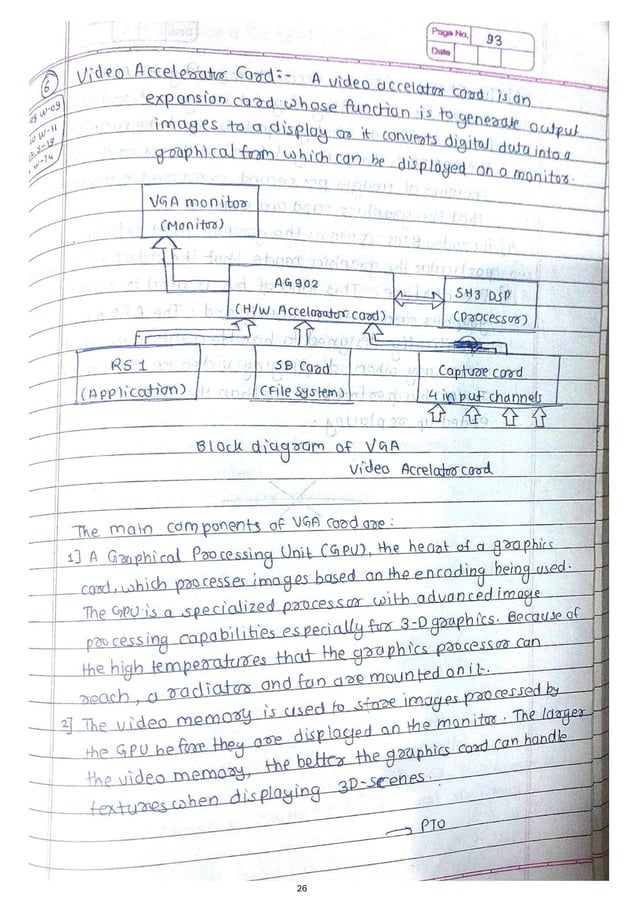 Page No. 93
Date
6
Video Accelerator Card:- A video accelator card is an
expansion card whose function is to generate output
images to a display or it converts digital data into a
graphical form which can be displayed on a monitor.
W-09
W-11
S-13
W-14
VGA monitor
(Monitor)
AG902
(H/W Accelarator card)
SH3 DSP
(processor)
RS1
(Application)
SD Card
(File system)
Capture card
4 input channels
Block diagram of VGA
Video Accrelator card
The main components of VGA card are:
1] A Graphical Processing Unit (GPU), the heart of a graphics
card, which processes images based on the encoding being used.
The GPU is a specialized processor with advanced image
processing capabilities especially for 3-D graphics. Because of
the high temperatures that the graphics processor can
reach, a radiator and fan are mounted on it.
2] The video memory is used to store images processed by
the GPU before they are displayed on the monitor. The larger
the video memory, the better the graphics card can handle
textures when displaying 3D-scenes.
→ PTO
26